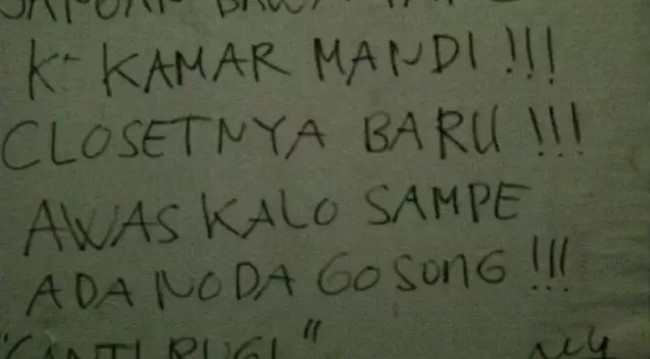 JANGAN BAWA
K- KAMAR MANDI !!!
CLOSETNYA BARU !!!
AWAS KALO SAMPE
ADA NODA GOSONG !!!
"GANTI RUGI"